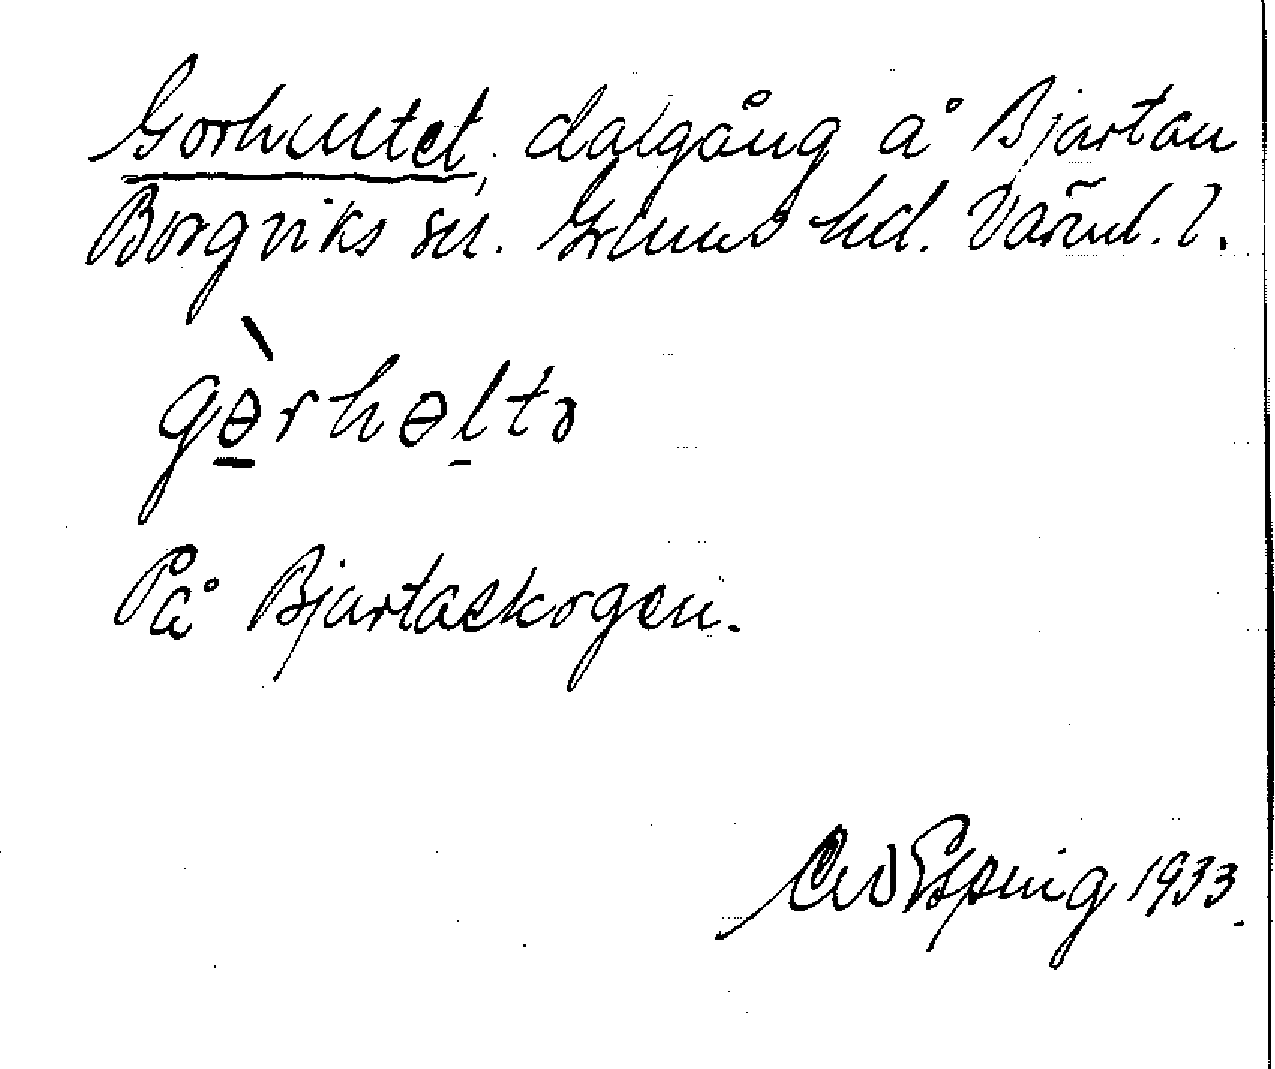 Gorhultet, dalgång å Bjartan
Borgviks sn. Grums hd. Värml. l.
gɵ̀rhɵltə
På Bjartaskogen.
Esping 1933.